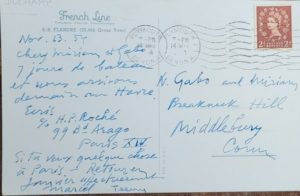 DUCHAMP
French Line
S/S FLANDRE (20,500 Gross Tons)
Nov. 63. 54
Cher Miriam et Gabo.
7 jours de bateau
et nous arrivons
demain au Havre.
Ecris
c/o H.P. Roché
99 Bd Arago
Paris XIV
Si tu veux quelque chose
à Paris
Marcel Teeny
N. Gabo and Miriam
Breakneck Hill
Middlebury
Conn